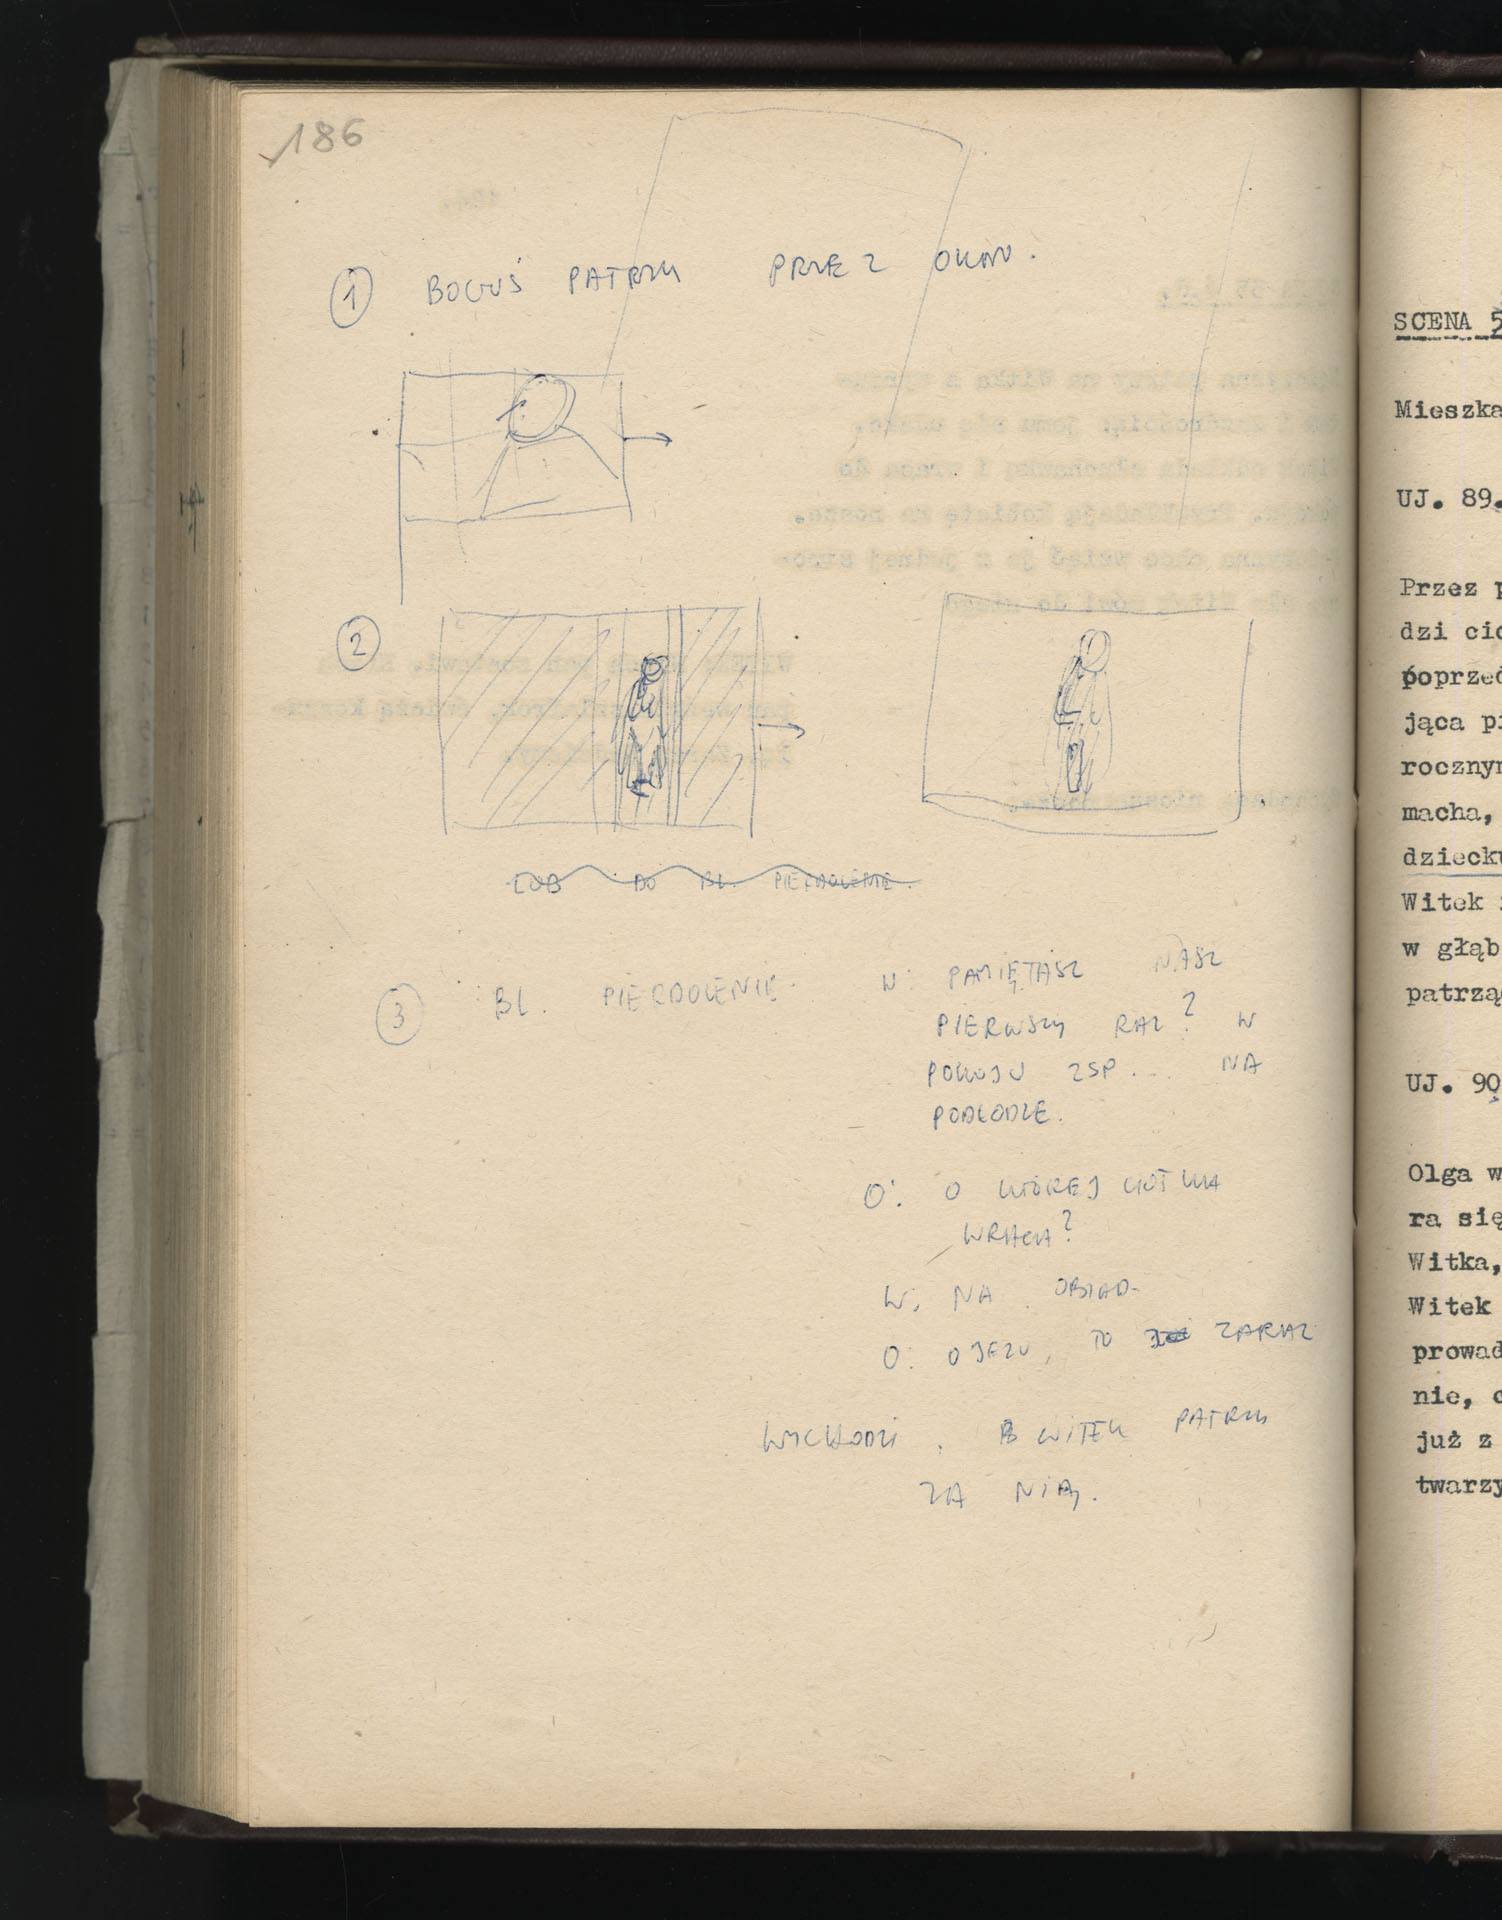 186
1 BOGUŚ PATRZY PRZEZ OKNO.
2
LUB DO BL. PIERDOLENIE.
3 BL. PIERDOLENIE.
W: PAMIĘTASZ NASZ
PIERWSZY RAZ? W
POKOJU ZSP... NA
PODŁODZE.
O: O KTÓREJ CIOTKA
WRACA?
W: NA OBIAD-
O: O JEZU, TO ZARAZ
WYCHODZI. WITEK PATRZY
ZA NIĄ.
SCENA 5
Mieszka
UJ. 89.
Przez p
dzi cic
poprzed
jąca pi
rocznym
macha,
dziecku
Witek
w głąb
patrzą
UJ. 90
Olga w
ra się
Witka,
Witek
prowad
nie, c
już z
twarzy